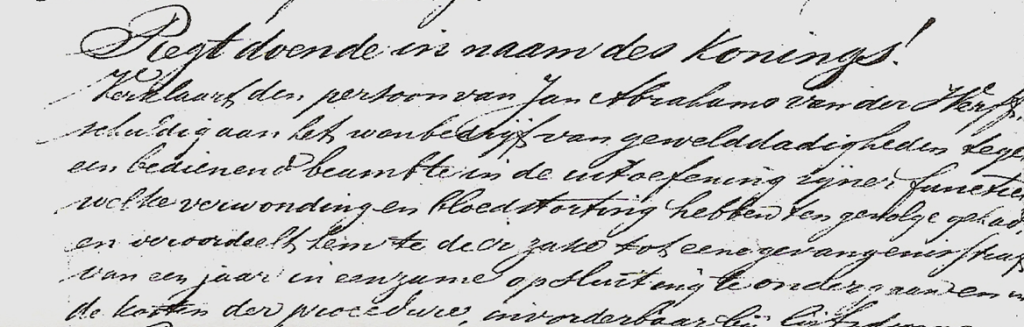 Regt doende in naam des Konings!
Verklaart den persoon van Jan Abrahams van der Werff,
schuldig aan het wanbedrijf van gewelddadigheden tegen
een bedienend beambte in de uitoefening zijner functie
welke verwonding en bloedstorting hebben ten gevolge gehad,
en veroordeelt hem te dier zake tot eene gevangenisstraf
van een jaar in eenzame opsluiting te ondergaan en in
de kosten der procedure, invorderbaar bij